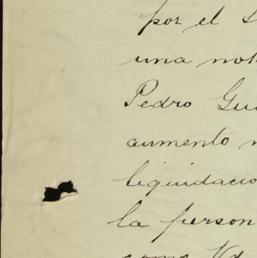 por el S
una not
Pedro Gui
aumento n
liquidacio
la person
como Vd